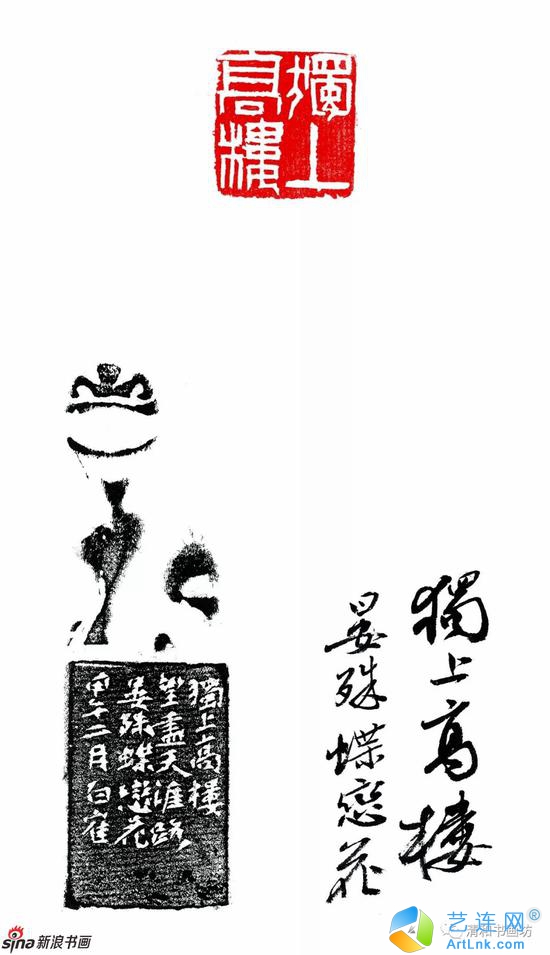 獨上
高樓
獨上高樓
晏殊蝶戀花
獨上高樓
望盡天涯路
晏殊蝶戀花
甲午二月白隺
sina新浪书画
清和书画坊
艺连网®
ArtLnk.com